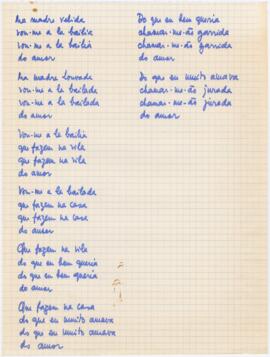 Ma madre velida
vou-me a la bailia
vou-me a la bailia
do amor
Ma madre louvada
vou-me a la bailada
vou-me a la bailada
do amor
Vou-me a la bailia
que fazem na vila
que fazem na vila
do amor
Vou-me a la bailada
que fazem na casa
que fazem na casa
do amor
Que fazem na vila
do que eu bem queria
do que eu bem queria
do amor
Que fazem na casa
do que eu muito amava
do que eu muito amava
do amor
Do que eu bem queria
chamar-me-ão garrida
chamar-me-ão garrida
do amor
Do que eu muito amava
chamar-me-ão jurada
chamar-me-ão jurada
do amor